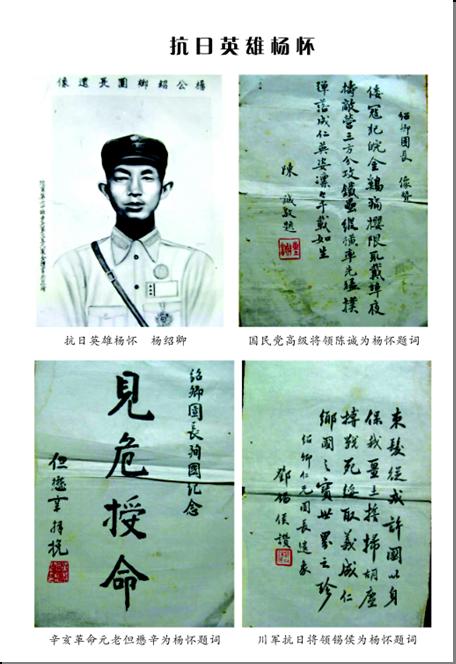 抗日英雄杨怀
楊公紹卿團長遺像
抗日英雄杨怀 杨绍卿
紹卿團長 像贊
倭寇犯皖金鷄 戴埠夜
搗敵營三方分攻鐵壘縱橫率先猛撲
彈落成仁英姿凛凛千載如生
陳誠敬題
国民党高级将领陈诚为杨怀题词
紹卿團長殉國紀念
見危授命
但懋辛拜挽
辛亥革命元老但懋辛为杨怀题词
束髮從戎許國以身
保我疆土誓掃胡塵
搏戰死綏取義成仁
鄉國之寶世界之珍
紹卿仁兄團長遺象
鄧錫侯讚
川军抗日将领锡侯为杨怀题词